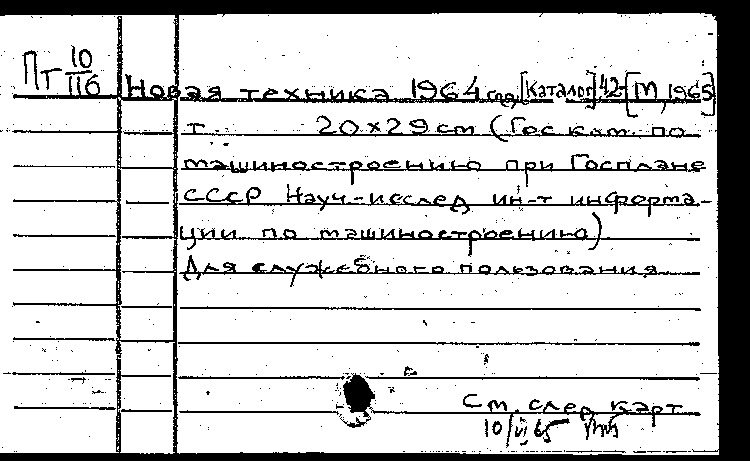 Пт 10/116 Новая техника 1964 год [Каталог] [М, 1965]
т. 20×29 см (Гос. ком. по
машиностроению при Госплане
СССР Науч-исслед ин-т информа-
ции по машиностроению)
Для служебного пользования
См. след карт
10/VI 65